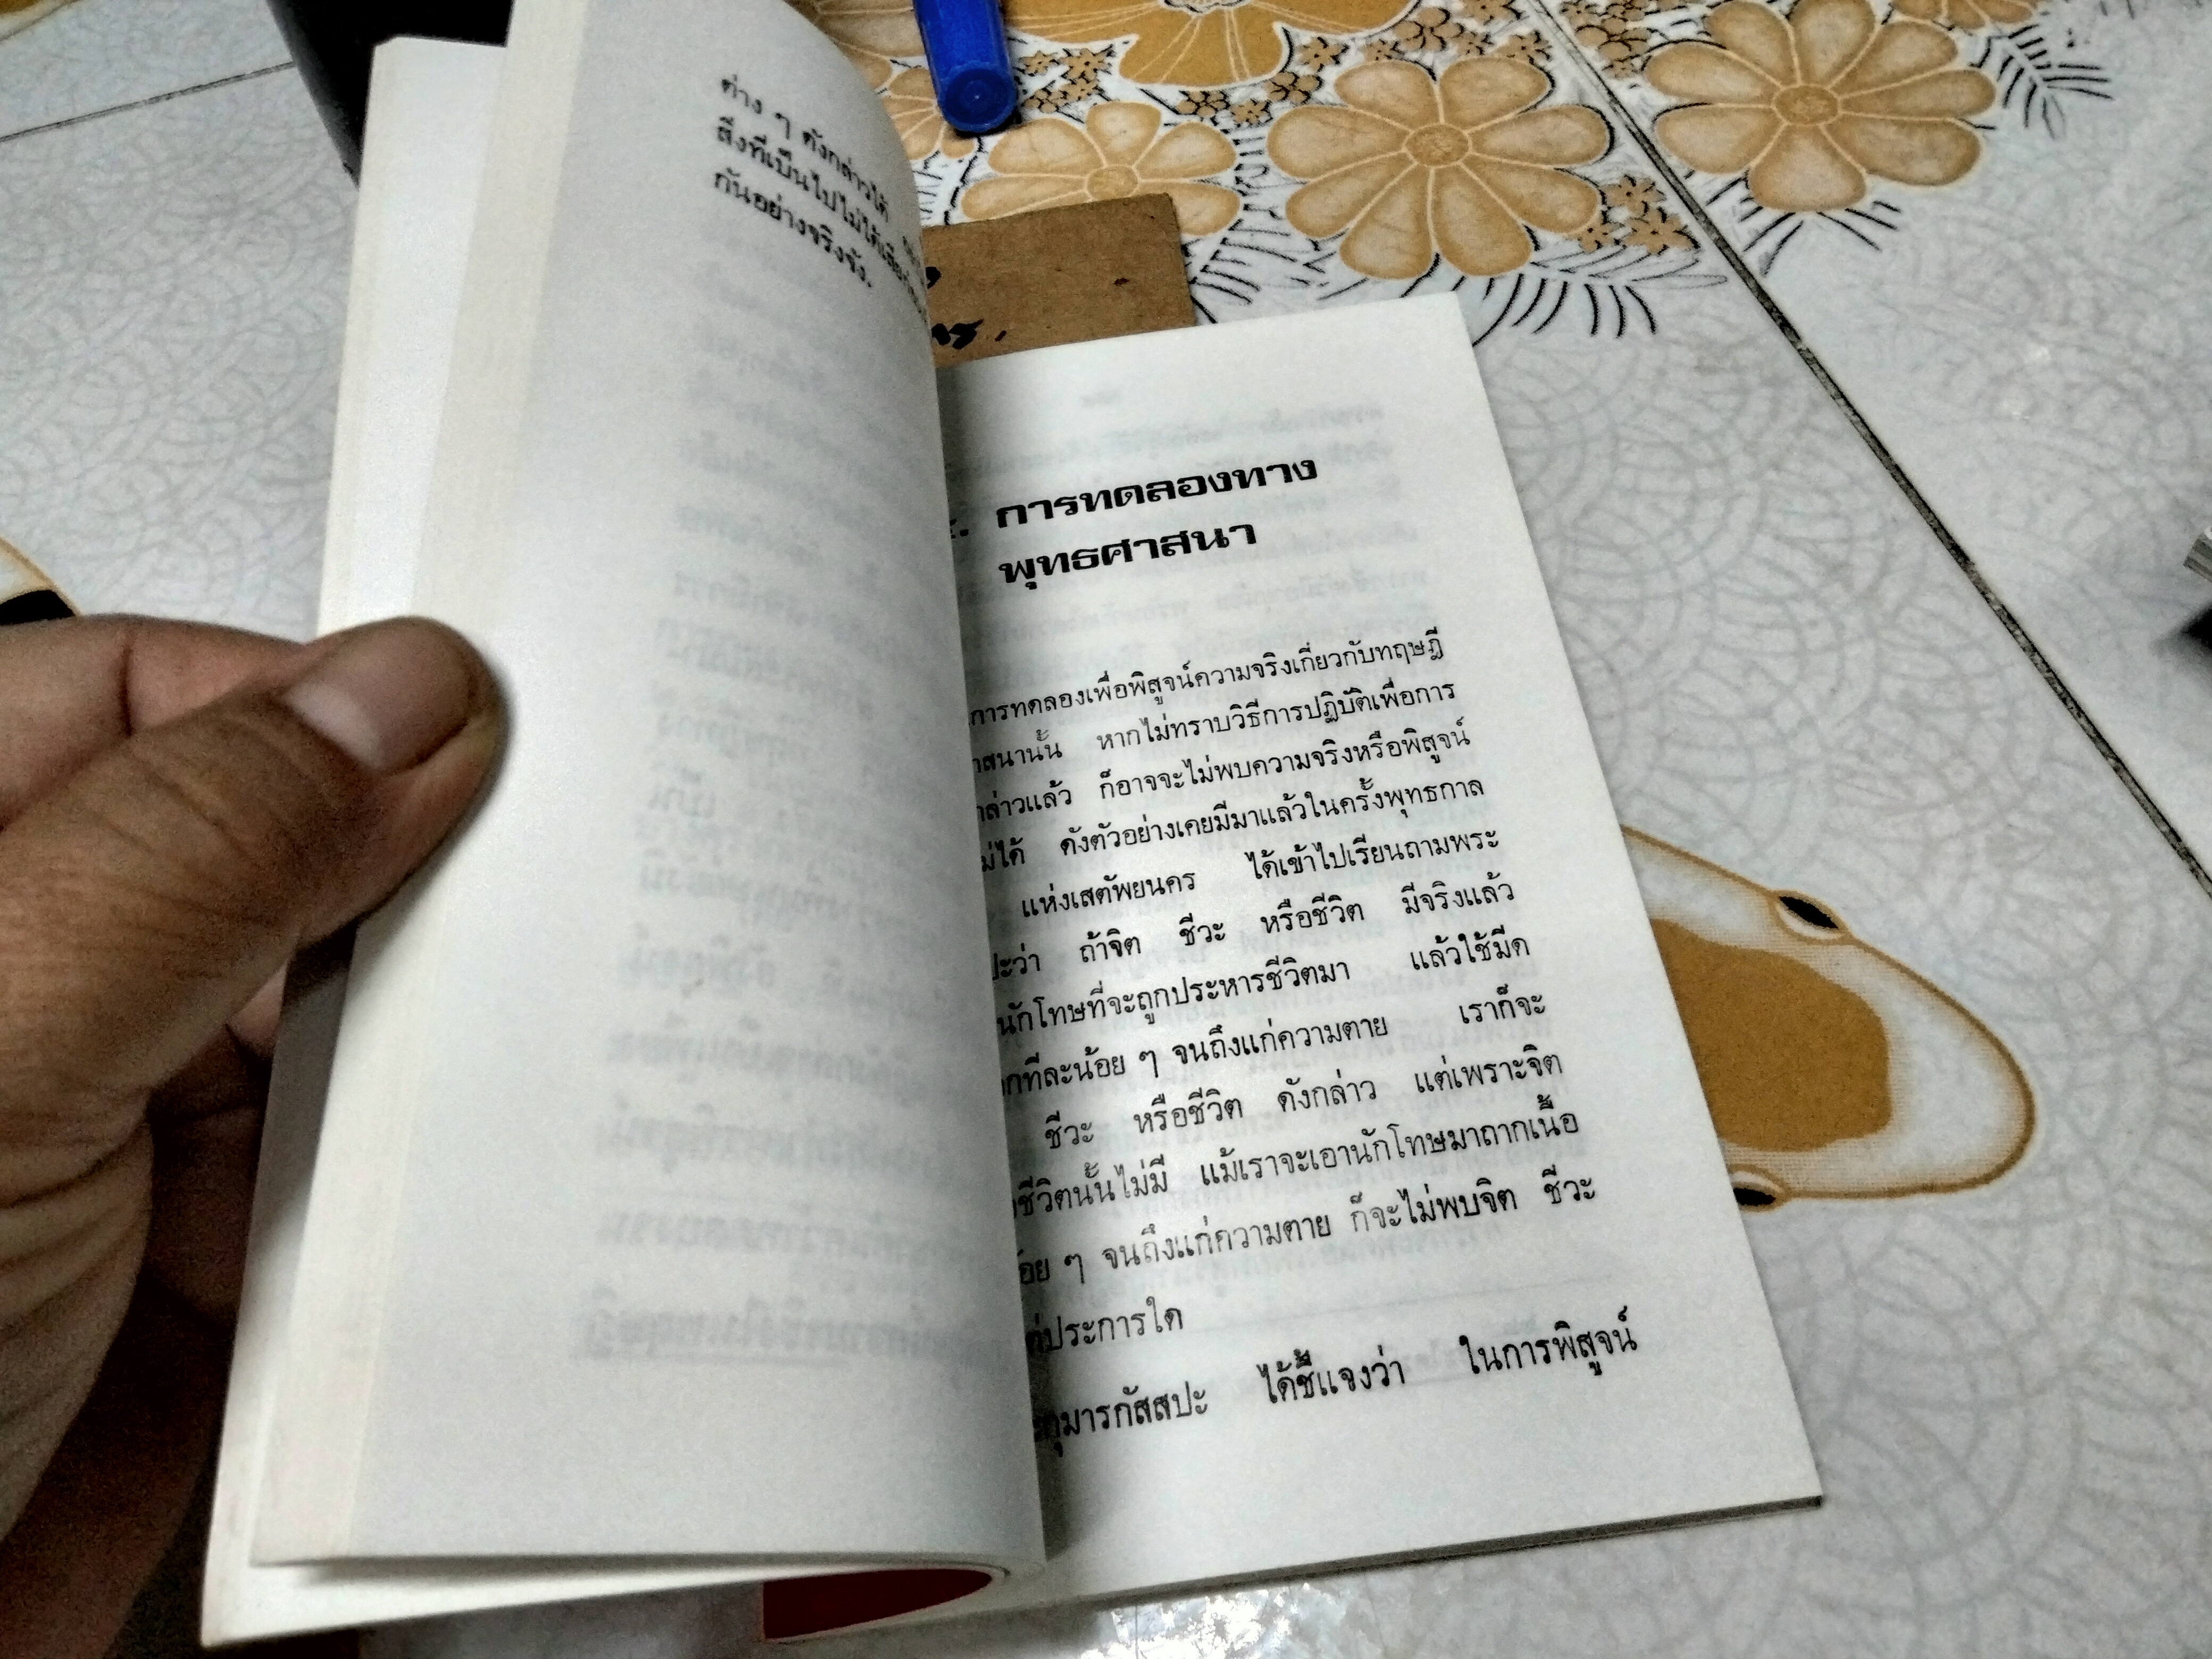 ต่าง ๆ ดังกล่าวได้
สิ่งที่เป็นไปไม่ได้เสีย
กันอย่างจริงจัง.
การทดลองทาง
พุทธศาสนา
การทดลองเพื่อพิสูจน์ความจริงเกี่ยวกับทฤษฎี
าสนานั้น หากไม่ทราบวิธีการปฏิบัติเพื่อการ
ล่าวแล้ว ก็อาจจะไม่พบความจริงหรือพิสูจน์
ม่ได้ ดังตัวอย่างเคยมีมาแล้วในครั้งพุทธกาล
แห่งเสตัพยนคร ได้เข้าไปเรียนถามพระ
ปะว่า ถ้าจิต ชีวะ หรือชีวิต มีจริงแล้ว
นักโทษที่จะถูกประหารชีวิตมา แล้วใช้มีด
กทีละน้อย ๆ จนถึงแก่ความตาย เราก็จะ
ชีวะ หรือชีวิต ดังกล่าว แต่เพราะจิต
ชีวิตนั้นไม่มี แม้เราจะเอานักโทษมาถากเนื้อ
้อย ๆ จนถึงแก่ความตาย ก็จะไม่พบจิต ชีวะ
ประการใด
กุมารกัสสปะ ได้ชี้แจงว่า ในการพิสูจน์